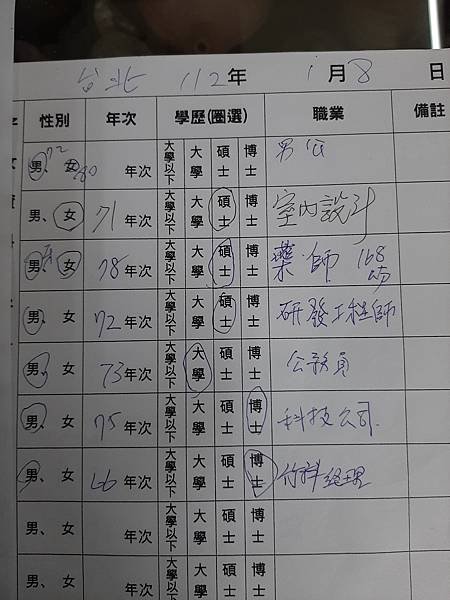 台北 112年 1月8日
性別 年次 學歷(圈選) 職業 備註
男、女 72 80 年次 大學以下 大學 碩士 博士 男公
男、女 71年次 大學以下 大學 碩士 博士 室內設計
男、女 78年次 大學以下 大學 碩士 博士 藥師 168
男、女 72年次 大學以下 大學 碩士 博士 研發工程師
男、女 73年次 大學以下 大學 碩士 博士 公務員
男、女 75年次 大學以下 大學 碩士 博士 科技公司.
男、女 66年次 大學以下 大學 碩士 博士 竹科經理
男、女 年次 大學以下 大學 碩士 博士
男、女 年次 大學以下 大學 碩士 博士